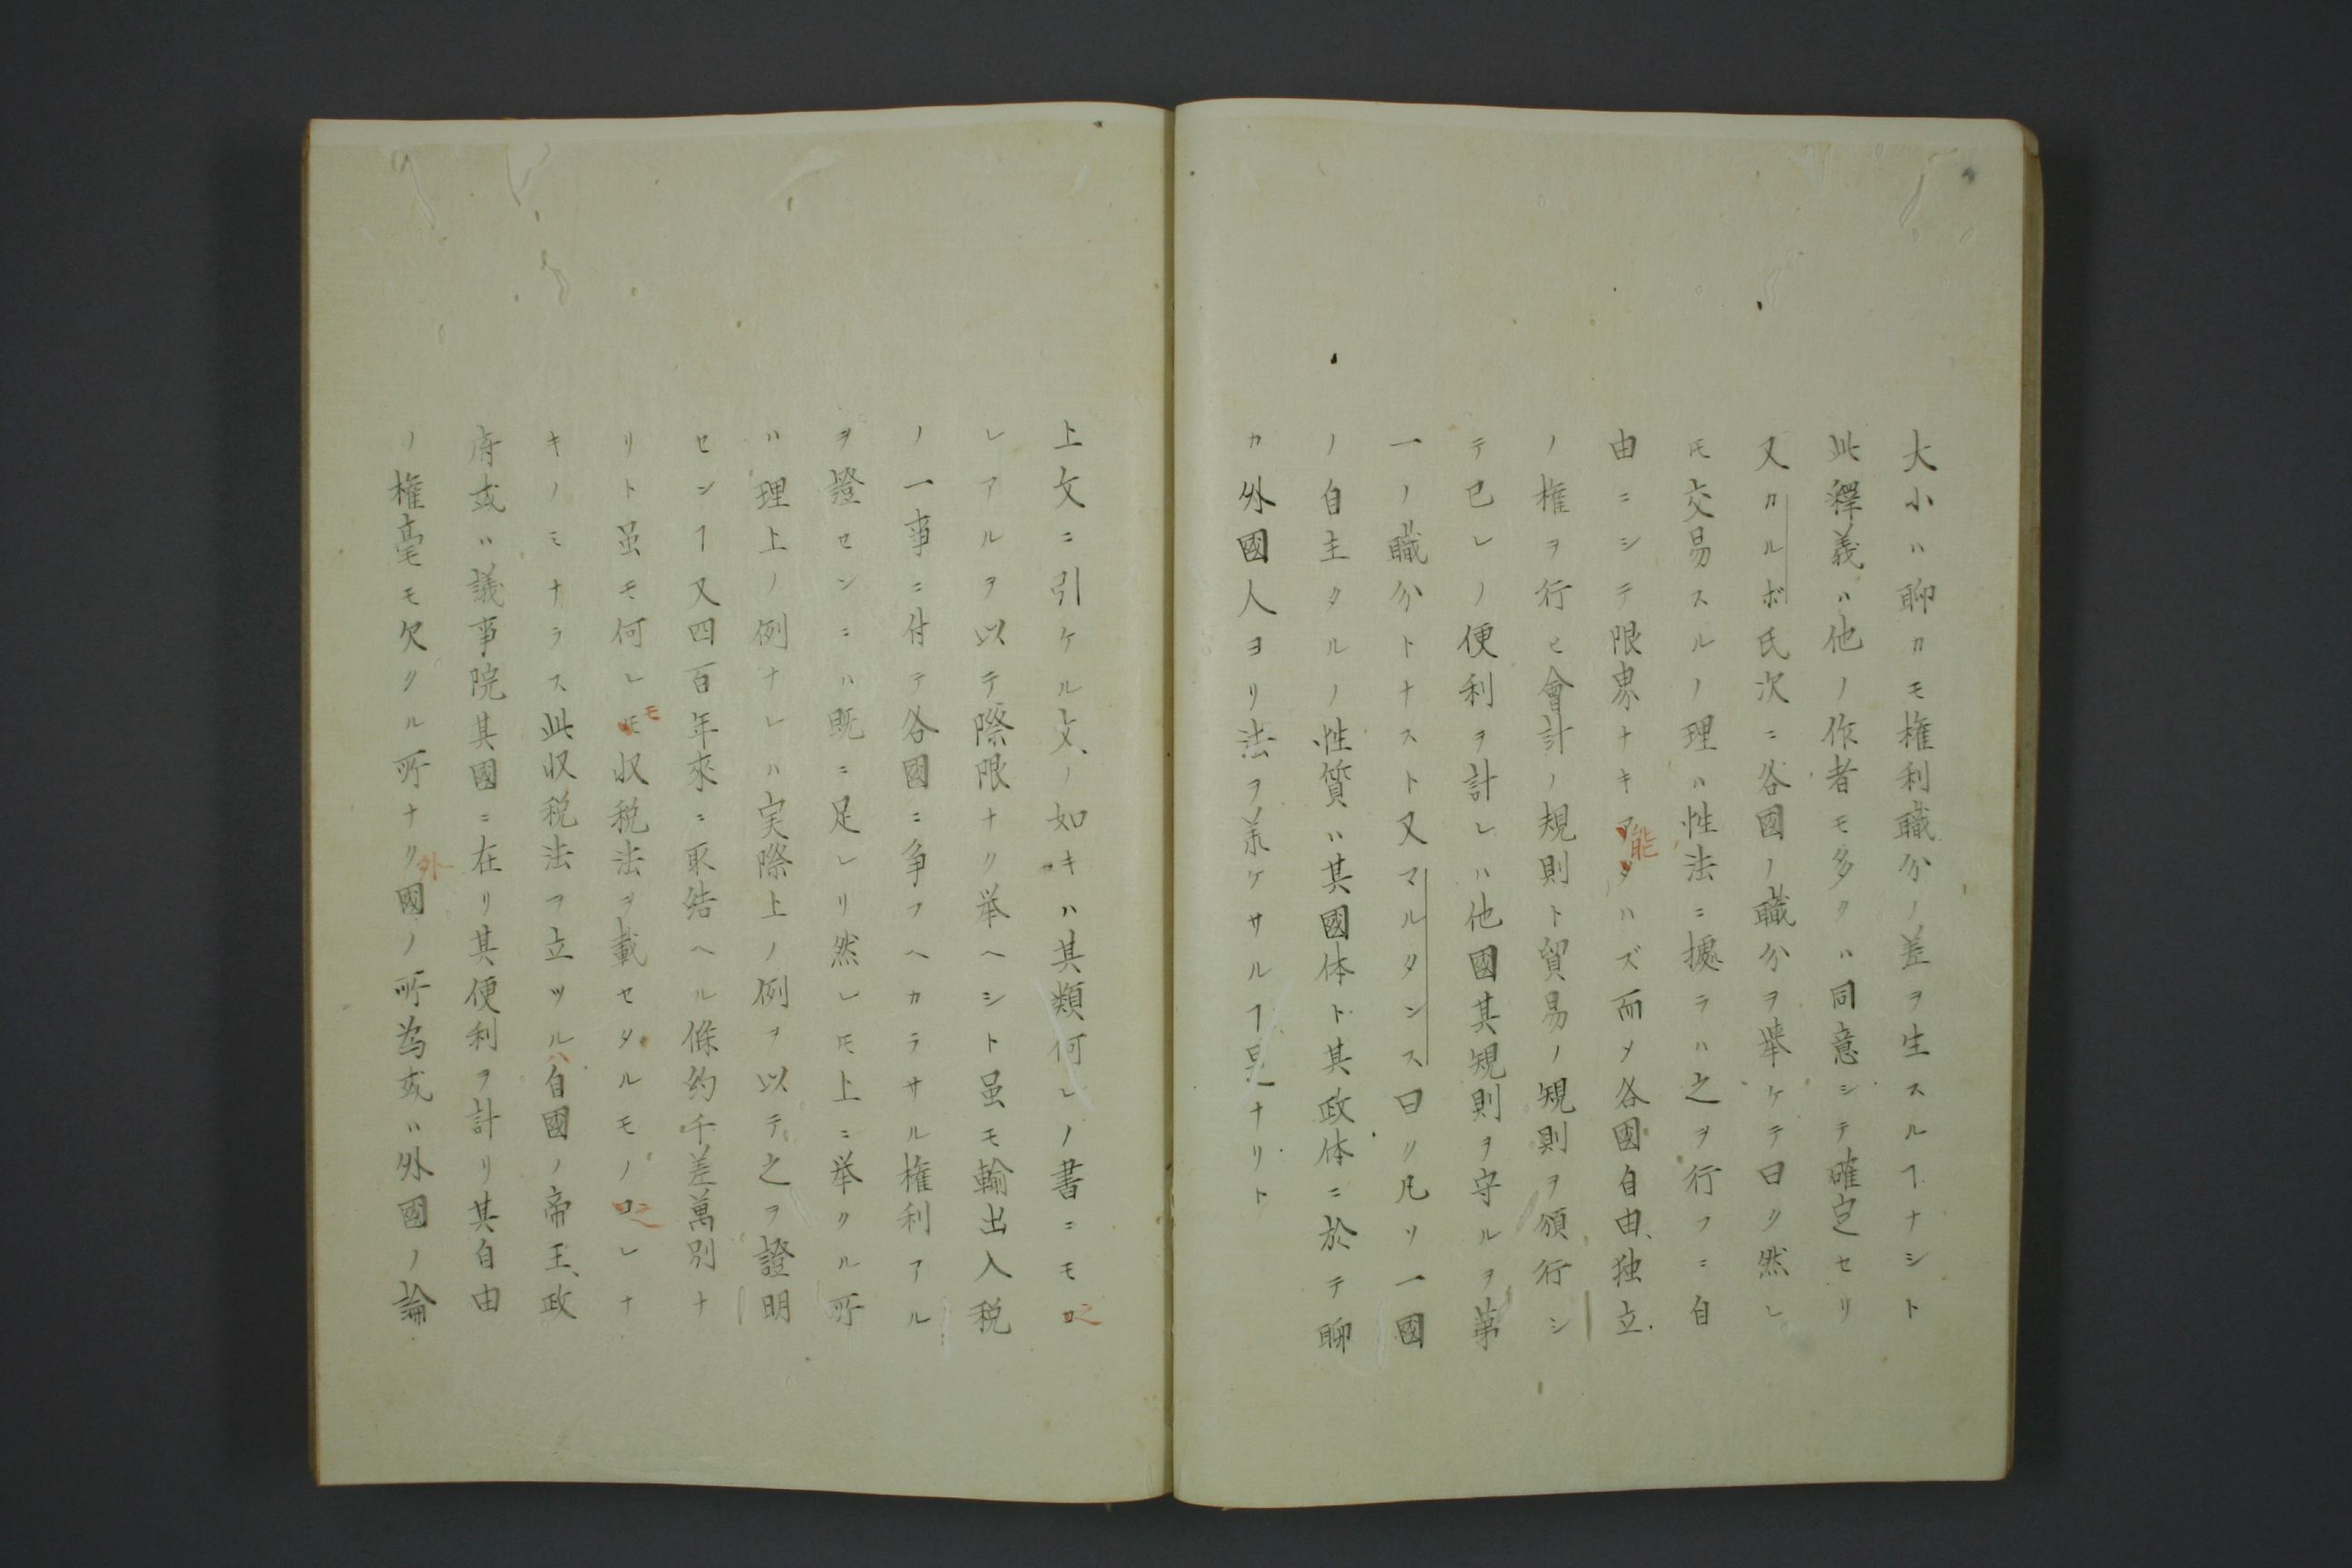 大小ハ聊カモ権利職分ノ差ヲ生スルヿナシト
此釋義ハ他ノ作者モ多クハ同意シテ確定セリ
又カルボ氏次ニ各國ノ職分ヲ挙ケテ曰ク然レ
𪜈交易スルノ理ハ性法ニ據ラハ之ヲ行フニ自
由ニシテ限界ナキ能ハズ而メ各國自由、独立
ノ権ヲ行ヒ會計ノ規則ト貿易ノ規則ヲ頒行シ
テ已レノ便利ヲ計レハ他國其規則ヲ守ルヲ第
一ノ職分トナスト又マルタンス曰ク凡ソ一國
ノ自主タルノ性質ハ其國体ト其政体ニ於テ聊
カ外國人ヨリ法ヲ承ケサルヿ是ナリト
上文ニ引ケル文、ノ如キハ其類何レノ書ニモ之
レアルヲ以テ際限ナク挙ヘシト虽モ輸出入税
ノ一事ニ付テ各國ニ争フヘカラサル権利アル
ヲ證センニハ既ニ足レリ然レ𪜈上ニ挙クル所
ハ理上ノ例ナレハ実際上ノ例ヲ以テ之ヲ證明
センヿ又四百年來ニ取結ヘル條約千差萬別ナ
リト虽モ何レモ収税法ヲ載セタルモノ之レナ
キノミナラス此収税法ヲ立ツルハ自國ノ帝王、政
府或ハ議事院其國ニ在リ其便利ヲ計リ其自由
ノ権毫モ欠クル所ナク外國ノ所為或ハ外國ノ論